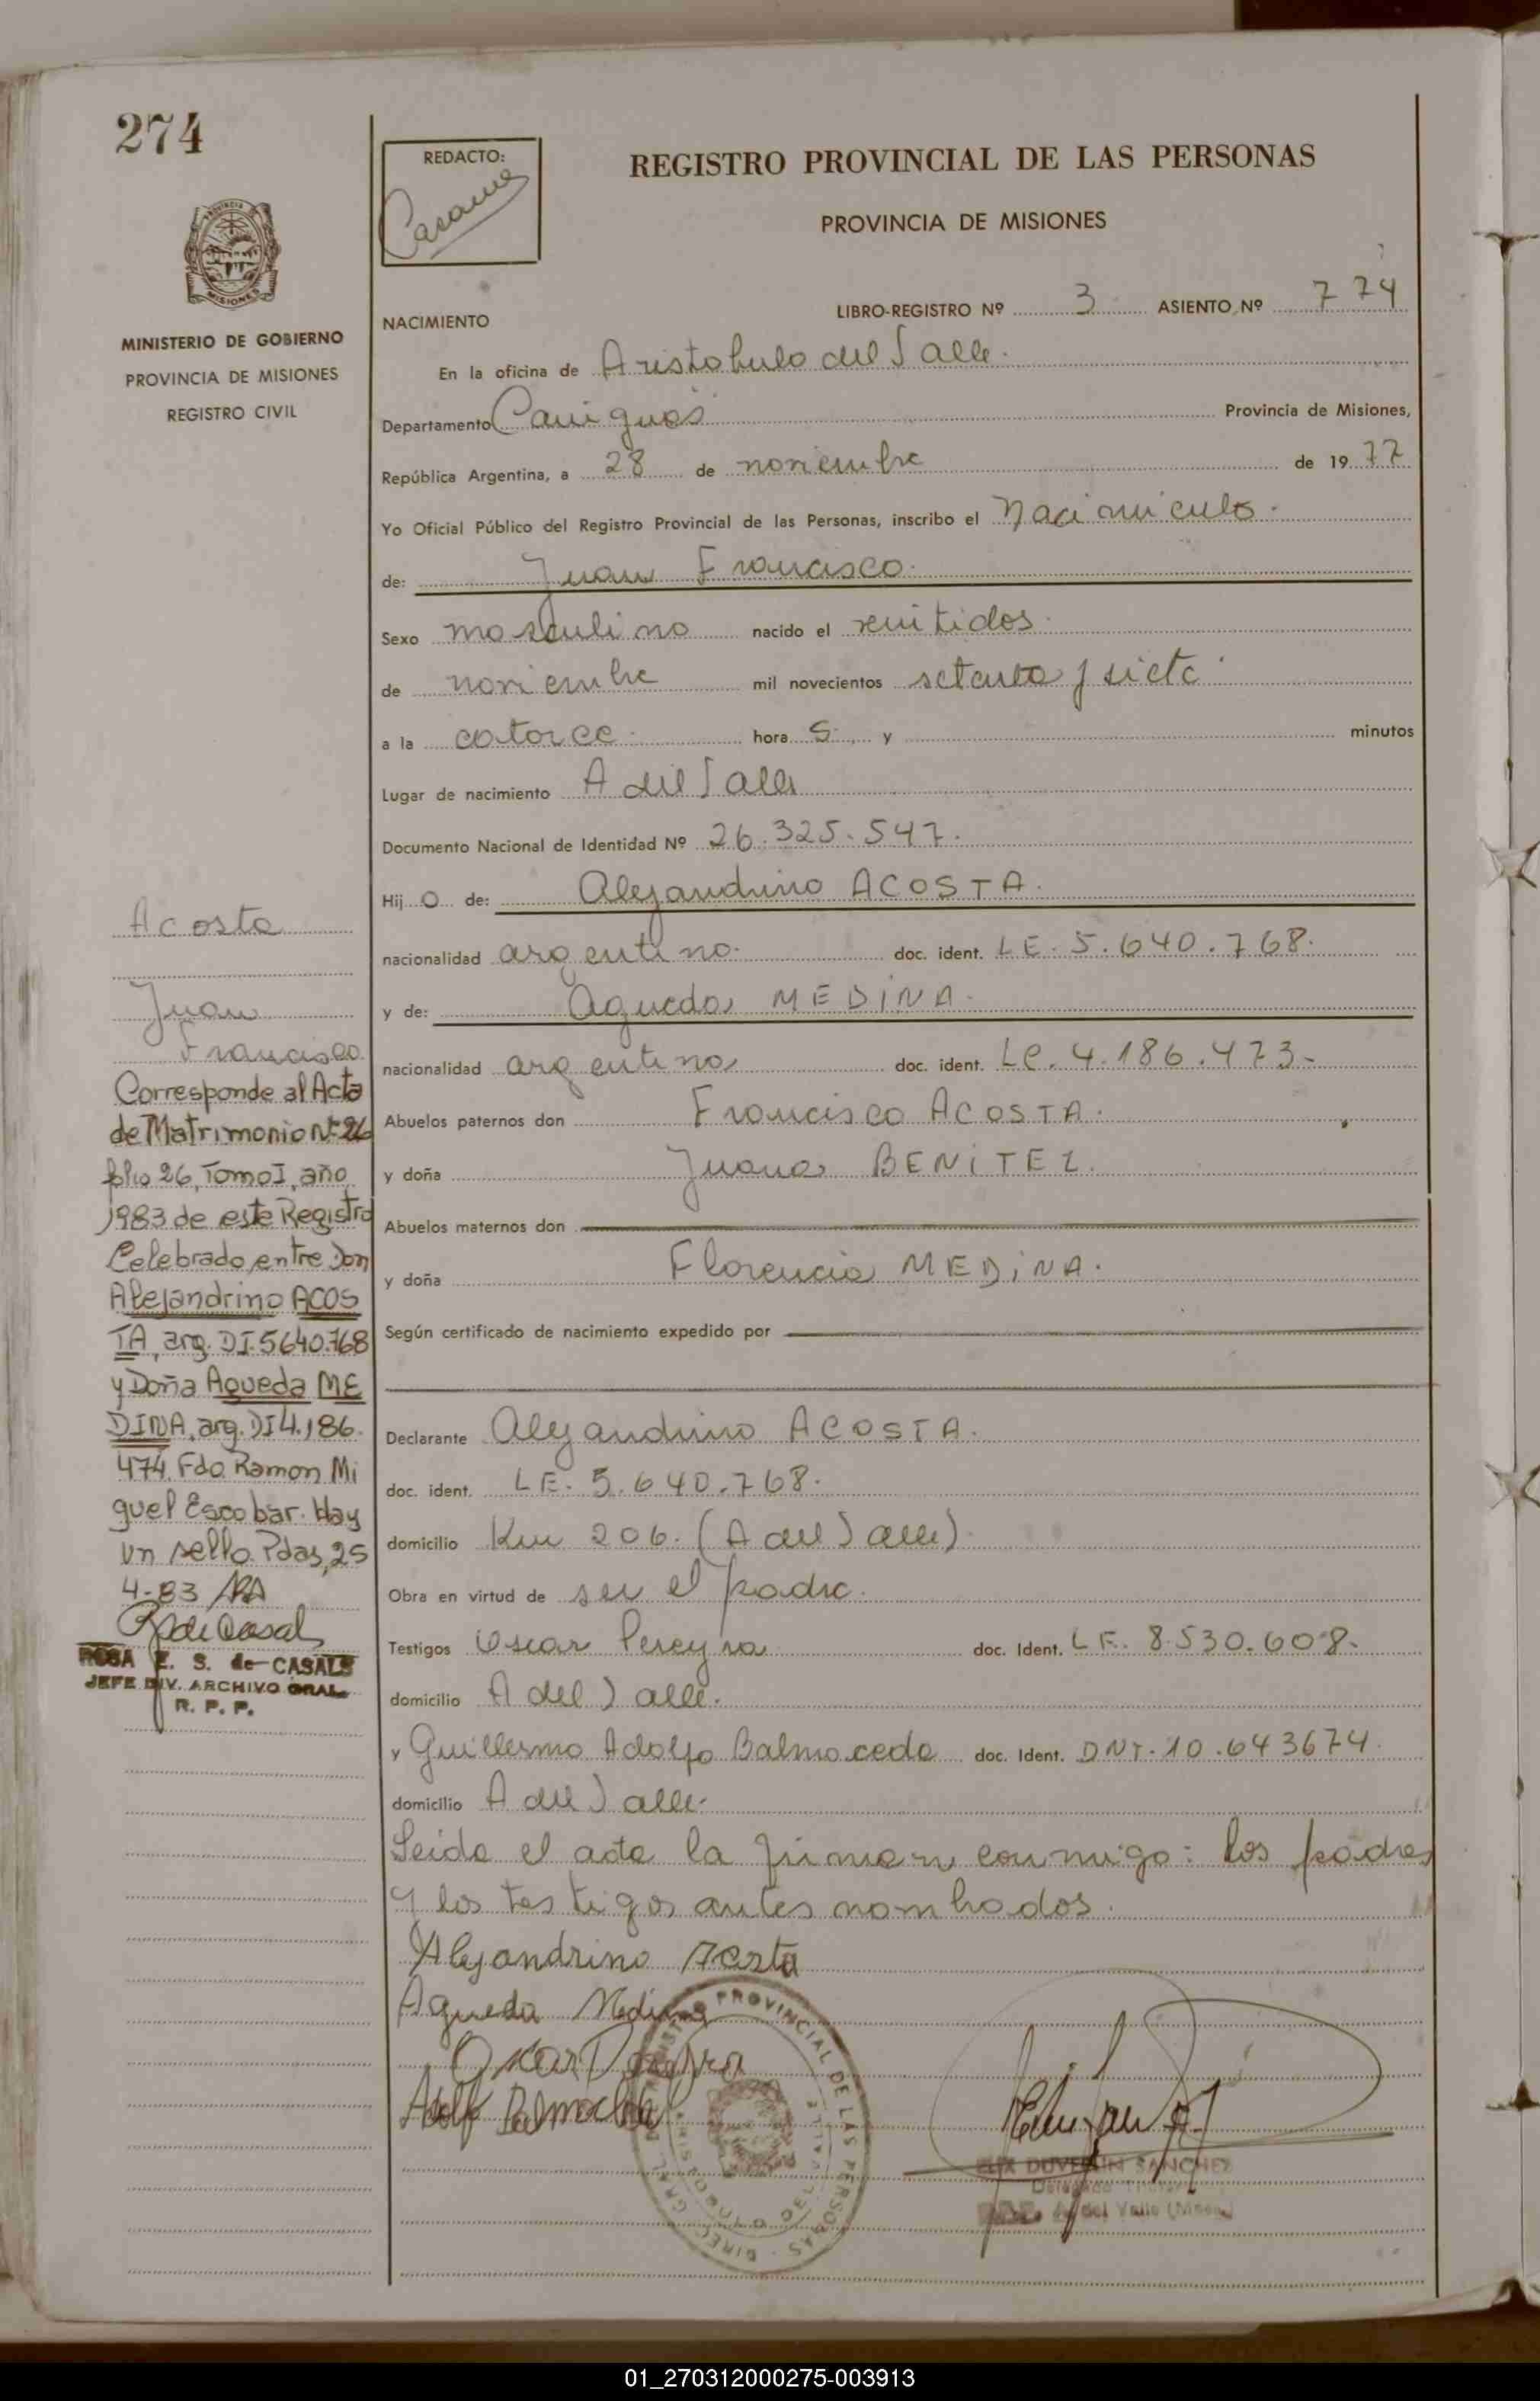 274
REDACTO:
REGISTRO PROVINCIAL DE LAS PERSONAS
PROVINCIA DE MISIONES
PROVINCIA
MISIONES
MINISTERIO DE GOBIERNO
PROVINCIA DE MISIONES
REGISTRO CIVIL
LIBRO-REGISTRO Nº 3 ASIENTO Nº 774
NACIMIENTO
En la oficina de Aristobulo del Valle.
Departamento Cainguás Provincia de Misiones,
República Argentina, a 28 de noviembre de 1977
Yo Oficial Público del Registro Provincial de las Personas, inscribo el Nacimiento.
de: Juan Francisco.
Sexo masculino nacido el veintidos.
de noviembre mil novecientos setenta y siete.
a la catorce. hora s. y minutos
Lugar de nacimiento A del Valle
Documento Nacional de Identidad Nº 26.325.547.
Hij o de: Alejandrino ACOSTA.
nacionalidad argentino. doc. ident. LE. 5.640.768.
y de: Agueda MEDINA.
nacionalidad argentina doc. ident. LC. 4.186.473.-
Abuelos paternos don Francisco ACOSTA.
y doña Juana BENITEZ.
Abuelos maternos don
y doña Florencia MEDINA.
Según certificado de nacimiento expedido por
Declarante Alejandrino ACOSTA.
doc. ident. LE. 5.640.768.
domicilio Km 206. (A del Valle)
Obra en virtud de ser el padre.
Testigos Oscar Pereyra doc. Ident. LE. 8.530.608.
domicilio A del Valle.
y Guillermo Adolfo Balmaceda doc. Ident. DNI. 10.643674.
domicilio A del Valle.
Leida el acta la firman conmigo: los padres
y los testigos antes nombrados.
Alejandrino Acosta
Agueda Medina
Oscar Pereyra
Adolfo Balmaceda
PROVINCIAL DE LAS PERSONAS
SANCHEZ
A. del Valle
Acosta
Juan
Francisco.
Corresponde al Acta
de Matrimonio Nº 26
folio 26, Tomo I, año
1983 de este Registro
Celebrado entre Don
Alejandrino ACOS
TA, arg. DI. 5640.768
y Doña Agueda ME
DINA, arg. DI 4.186.
474. Fdo. Ramon Mi
guel Escobar. Hay
un sello. Pdas, 25
4-83
R de Casals
ROSA E. S. de CASALS
JEFE DIV. ARCHIVO GRAL.
R. P. P.
01_270312000275-003913